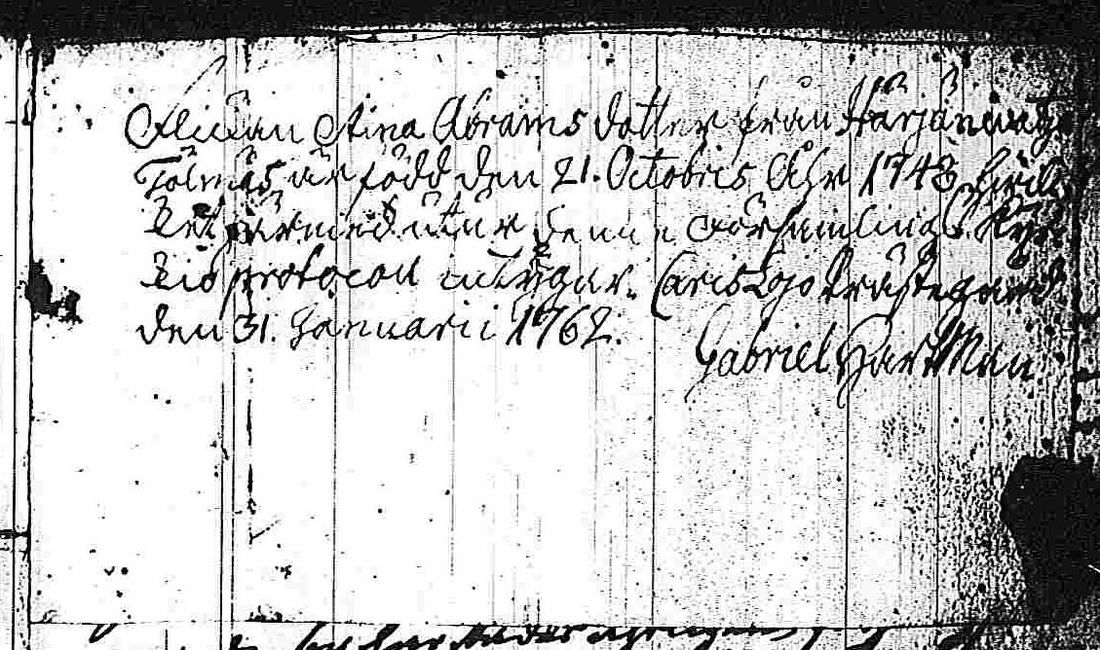 Flickan Stina Abrams dotter från Harjänvatz
Tölmäs är född den 21. Octobris Åhr 1743 hvil
ket härmed utur denne Församlings Kyr
kio protocoll intygar. CarisLojo Prästegård
den 31. Januarii 1762.
Gabriel HartMan